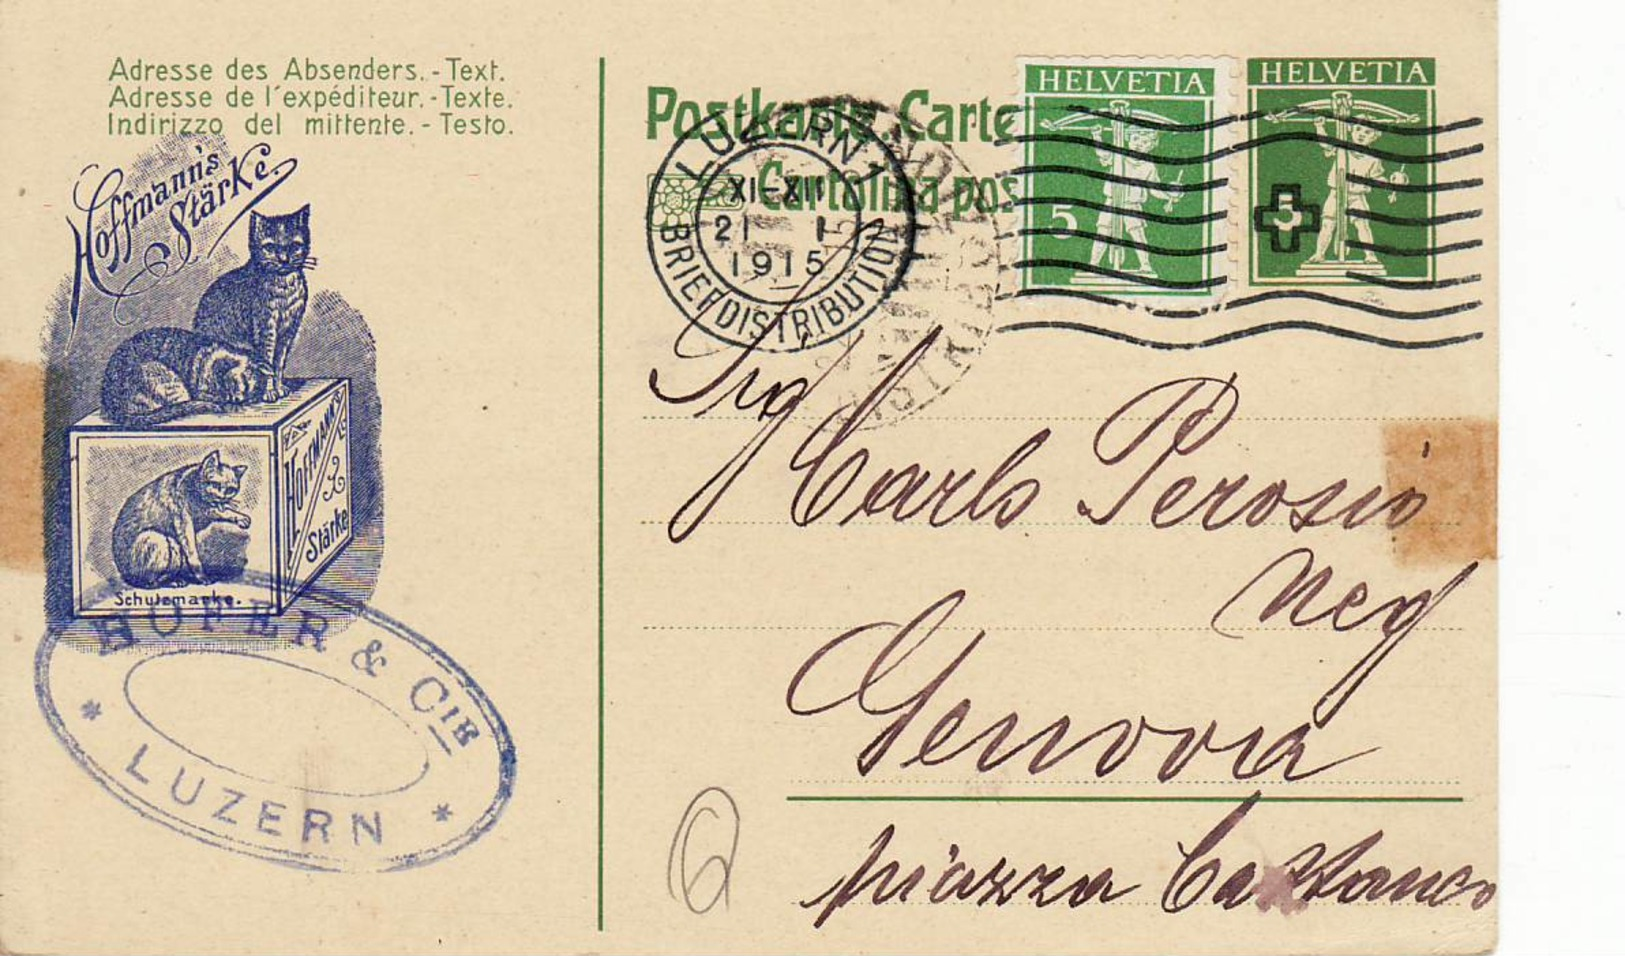 Adresse des Absenders. - Text.
Adresse de l'expéditeur. - Texte.
Indirizzo del mittente. - Testo.
Hoffmann's
Stärke.
HOFFMANN'S
Stärke
Schutzmarke.
HOFER & CIE
* LUZERN *
Postkarte. Carte
Cartolina pos
LUZERN 1
XI-XII
21 I
1915
BRIEFDISTRIBUTION
HELVETIA
5
HELVETIA
5
Sig
Carlo Perosio
Neg
Genova
piazza